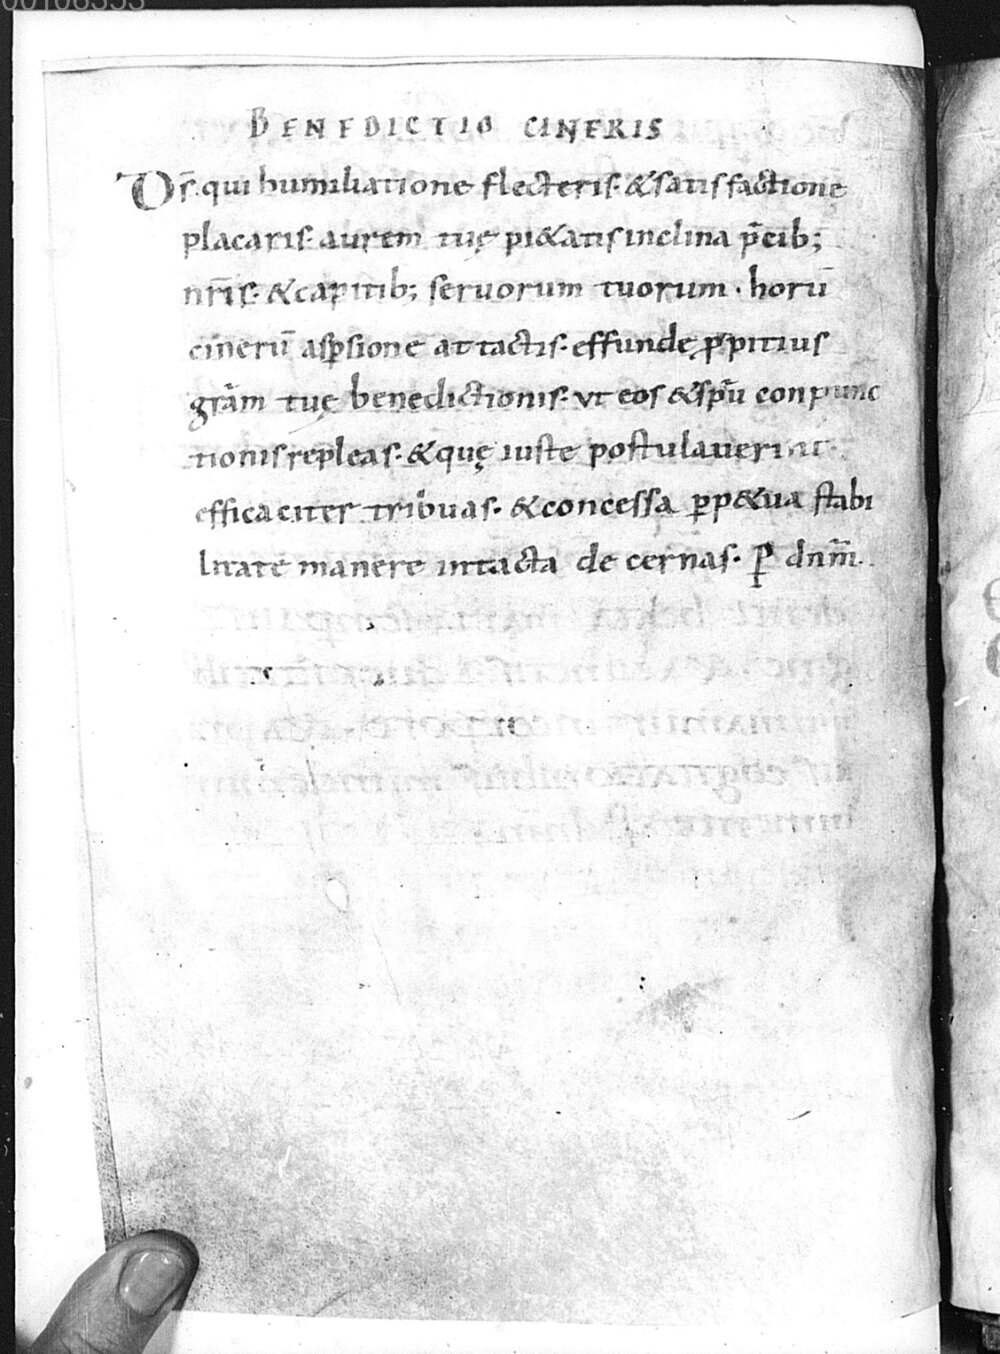 00108353
BENEDICTIO CINERIS
Ds̄. qui humiliatione flecteris. & satisfactione
placaris. aurem tuę pi&atis inclina p̄cib;
nr̄is. & capitib; seruorum tuorum. horū
cinerū asꝑsione attactis. effunde ꝓpitius
grām tuę benedictionis. ut eos & sp̄u conpunc
tionis repleas. & quę iuste postulauerint
efficaciter tribuas. & concessa ꝑp&ua stabi
litate manere intacta decernas. ꝑ dnm̄.